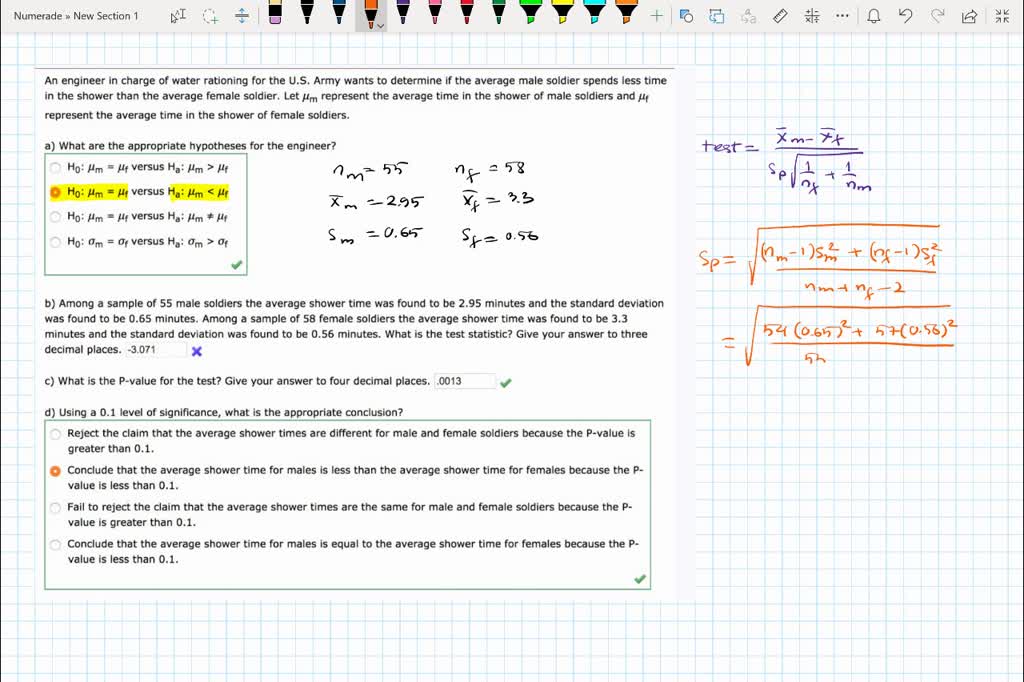 Numerade » New Section 1
An engineer in charge of water rationing for the U.S. Army wants to determine if the average male soldier spends less time
in the shower than the average female soldier. Let μm represent the average time in the shower of male soldiers and μf
represent the average time in the shower of female soldiers.
a) What are the appropriate hypotheses for the engineer?
H0: μm = μf versus Ha: μm > μf
H0: μm = μf versus Ha: μm < μf
H0: μm = μf versus Ha: μm ≠ μf
H0: σm = σf versus Ha: σm > σf
nm = 55 nf = 58
x̄m = 2.95 x̄f = 3.3
Sm = 0.65 Sf = 0.56
b) Among a sample of 55 male soldiers the average shower time was found to be 2.95 minutes and the standard deviation
was found to be 0.65 minutes. Among a sample of 58 female soldiers the average shower time was found to be 3.3
minutes and the standard deviation was found to be 0.56 minutes. What is the test statistic? Give your answer to three
decimal places. -3.071
c) What is the P-value for the test? Give your answer to four decimal places. .0013
d) Using a 0.1 level of significance, what is the appropriate conclusion?
Reject the claim that the average shower times are different for male and female soldiers because the P-value is
greater than 0.1.
Conclude that the average shower time for males is less than the average shower time for females because the P-
value is less than 0.1.
Fail to reject the claim that the average shower times are the same for male and female soldiers because the P-
value is greater than 0.1.
Conclude that the average shower time for males is equal to the average shower time for females because the P-
value is less than 0.1.
test = (x̄m - x̄f) / (Sp √(1/nf + 1/nm))
Sp = √(((nm-1)Sm² + (nf-1)Sf²) / (nm + nf - 2))
= √((54(0.65)² + 57(0.56)²) /